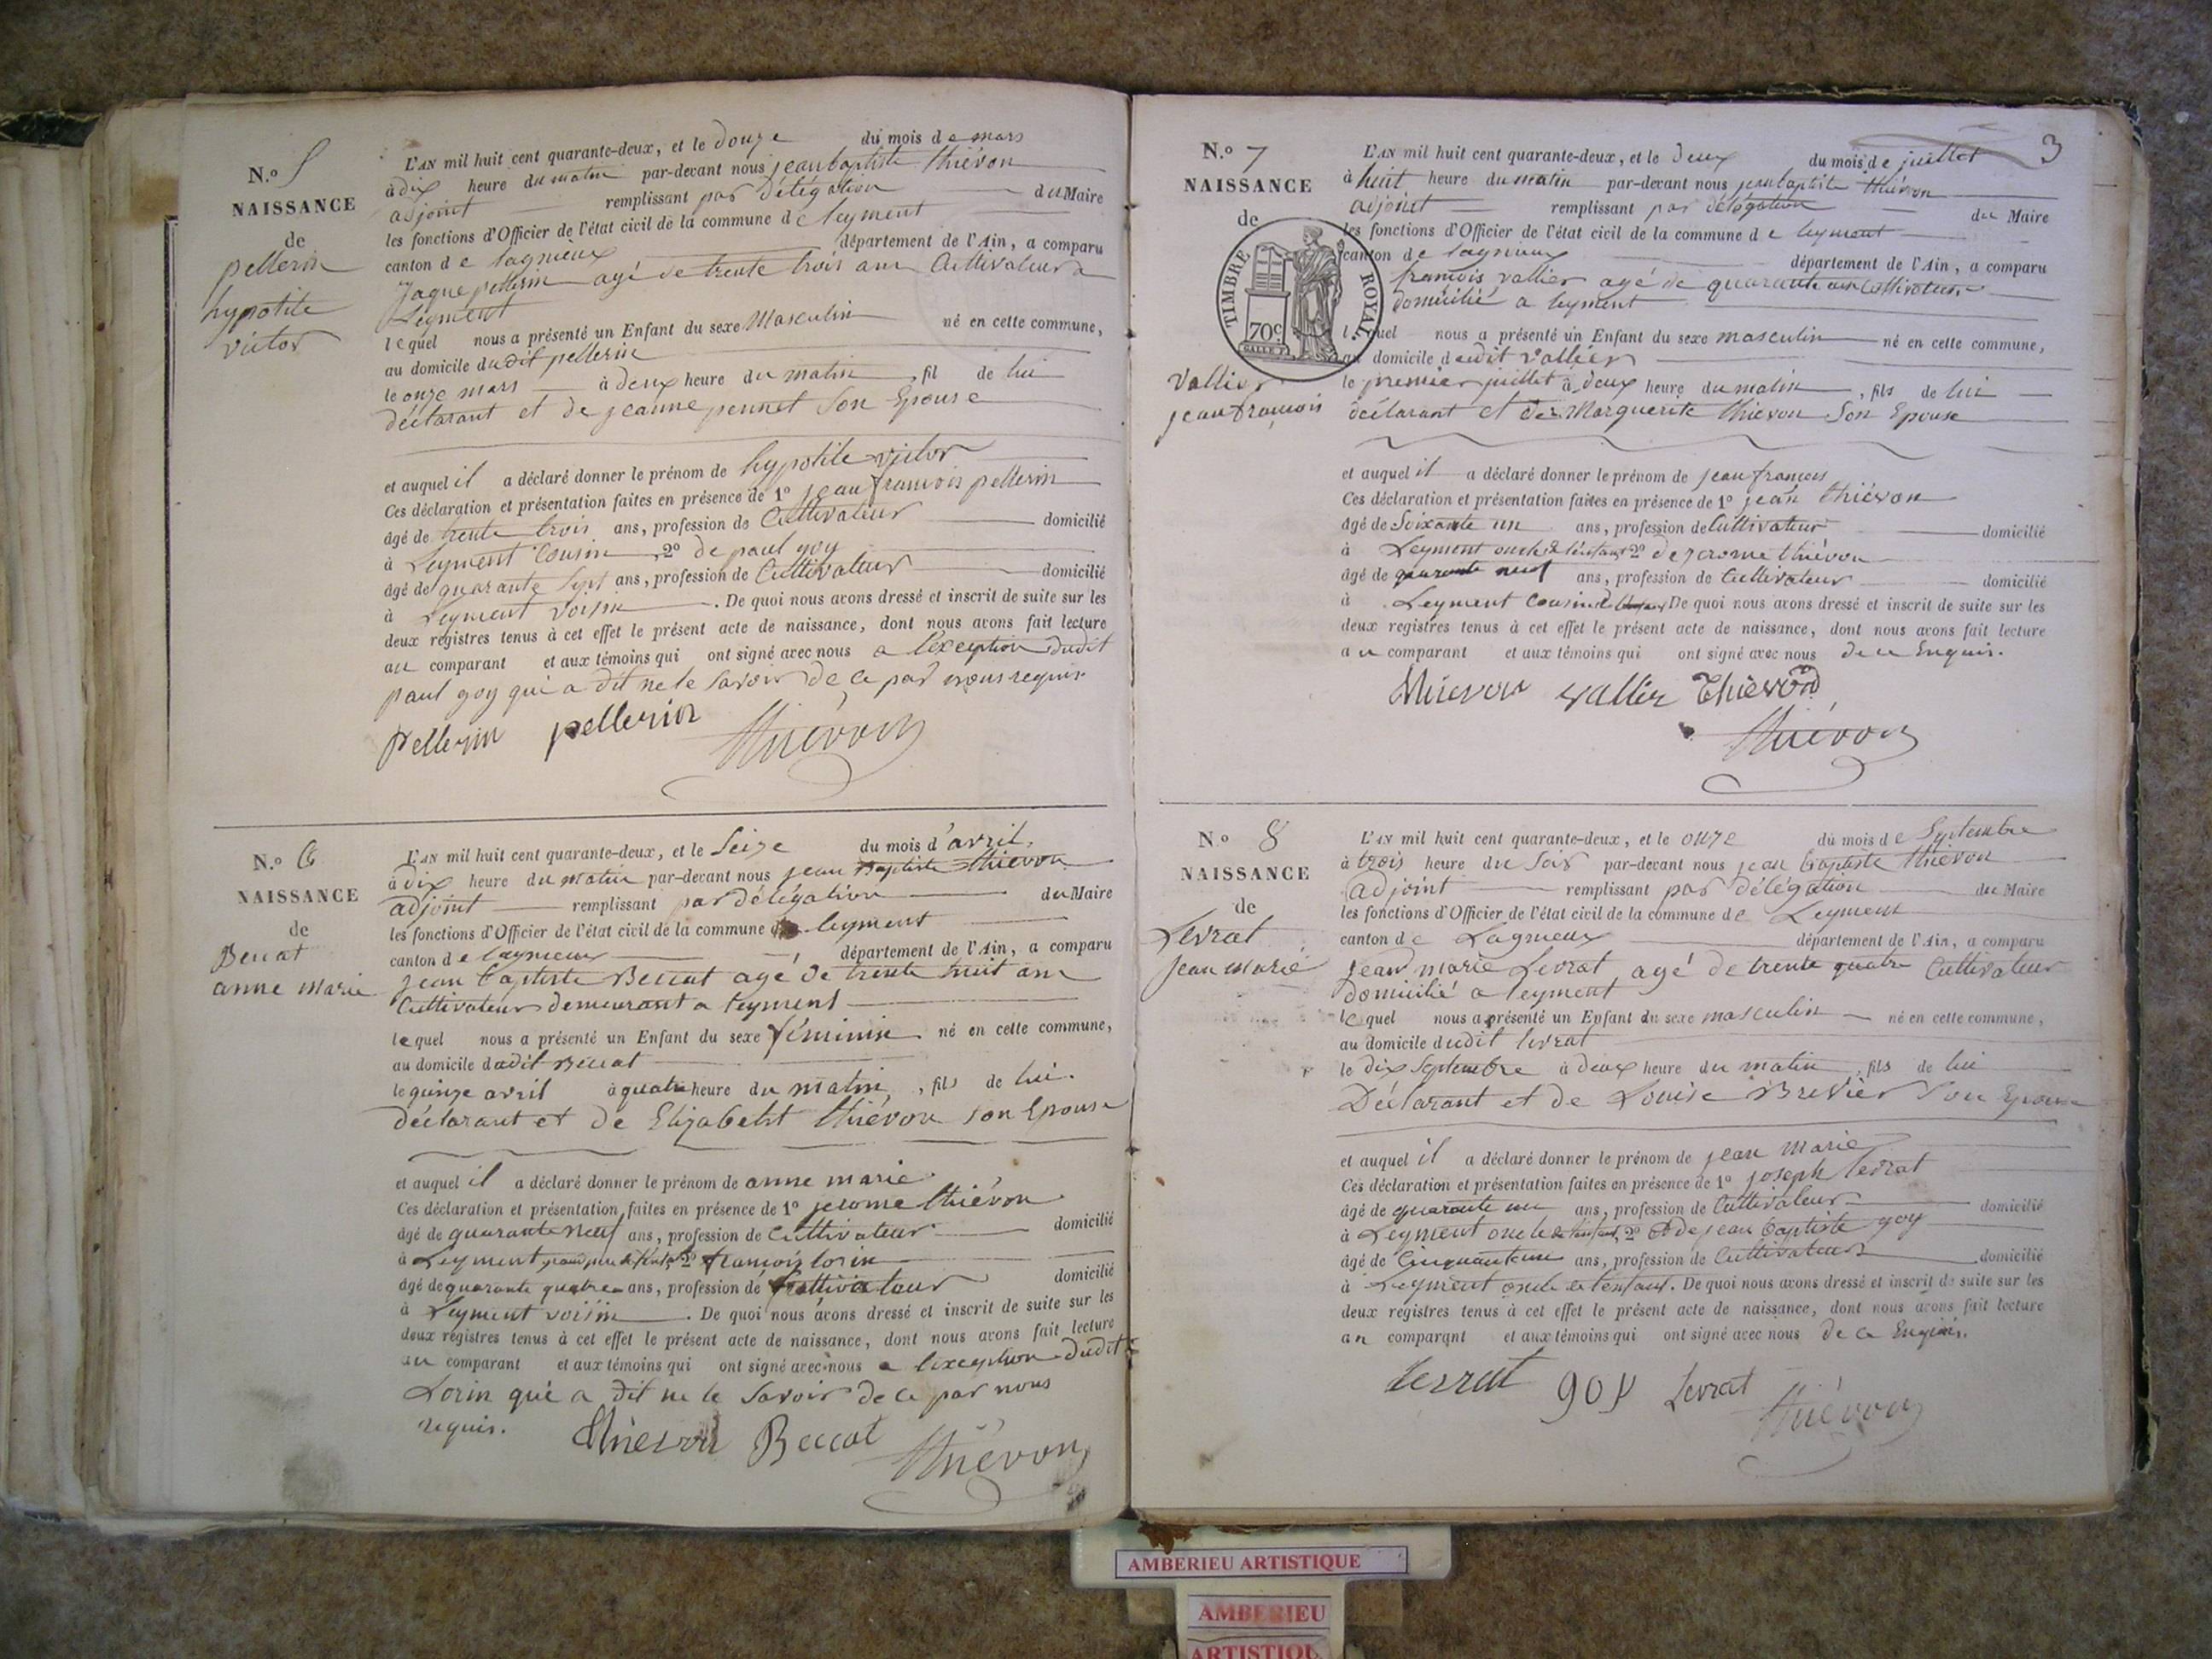 N.º 5
NAISSANCE
de
pellerin
hypolite
victor
L'AN mil huit cent quarante-deux, et le douze du mois de mars
à dix heure du matin par-devant nous jean baptiste thiévon
adjoint remplissant par délégation du Maire
les fonctions d'Officier de l'état civil de la commune de leyment
canton de lagnieux département de l'Ain, a comparu
Jaque pellerin agé de trente trois ans Cultivateur a
Leyment
lequel nous a présenté un Enfant du sexe Masculin né en cette commune,
au domicile dudit pellerin
le onze mars à deux heure du matin, fil de lui
déclarant et de jeanne pennet son Epouse
et auquel il a déclaré donner le prénom de hypolite victor
Ces déclaration et présentation faites en présence de 1º jean francois pellerin
âgé de trente trois ans, profession de Cultivateur domicilié
à Leyment Cousin, 2º de paul goy
âgé de quarante sept ans, profession de Cultivateur domicilié
à Leyment voisin. De quoi nous avons dressé et inscrit de suite sur les
deux registres tenus à cet effet le présent acte de naissance, dont nous avons fait lecture
au comparant et aux témoins qui ont signé avec nous a l'exception dudit
paul goy qui a dit ne le savoir de ce par nous requis
pellerin pellerin Thiévon
N.º 6
NAISSANCE
de
Beccat
anne marie
L'AN mil huit cent quarante-deux, et le Seize du mois d'avril,
à dix heure du matin par-devant nous jean Baptiste thiévon
adjoint remplissant par délégation du Maire
les fonctions d'Officier de l'état civil de la commune de leyment
canton de lagnieux département de l'Ain, a comparu
jean baptiste Beccat agé de trente huit ans
Cultivateur demeurant a leyment
lequel nous a présenté un Enfant du sexe féminin né en cette commune,
au domicile dudit Beccat
le quinze avril à quatre heure du matin, fils de lui
déclarant et de Elizabeht thiévon son Epouse
et auquel il a déclaré donner le prénom de anne marie
Ces déclaration et présentation faites en présence de 1º jerome thiévon
âgé de quarante neuf ans, profession de Cultivateur domicilié
à Leyment 2º francois lorin
âgé de quarante quatre ans, profession de Cultivateur domicilié
à Leyment voisin. De quoi nous avons dressé et inscrit de suite sur les
deux registres tenus à cet effet le présent acte de naissance, dont nous avons fait lecture
au comparant et aux témoins qui ont signé avec nous a l'exception dudit
Lorin qui a dit ne le savoir de ce par nous
requis.
Thiévon Beccat Thiévon
3
N.º 7
NAISSANCE
de
TIMBRE ROYAL
70c
Vallier
jean francois
L'AN mil huit cent quarante-deux, et le deux du mois de juillet
à huit heure du matin par-devant nous jean baptiste thiévon
adjoint remplissant par délégation du Maire
les fonctions d'Officier de l'état civil de la commune de leyment
canton de lagnieux département de l'Ain, a comparu
francois vallier agé de quarante ans Cultivateur
domicilié a leyment
lequel nous a présenté un Enfant du sexe masculin né en cette commune,
au domicile dudit vallier
le premier juillet à deux heure du matin, fils de lui
déclarant et de Marguerite thiévon Son Epouse
et auquel il a déclaré donner le prénom de jean francois
Ces déclaration et présentation faites en présence de 1º jean thiévon
âgé de Soixante un ans, profession de Cultivateur domicilié
à Leyment oncle de l'enfant 2º de jerome thiévon
âgé de quarante neuf ans, profession de Cultivateur domicilié
à Leyment Cousin De quoi nous avons dressé et inscrit de suite sur les
deux registres tenus à cet effet le présent acte de naissance, dont nous avons fait lecture
au comparant et aux témoins qui ont signé avec nous de ce Enquis.
Thievon vallier Thiévon
Thiévon
N.º 8
NAISSANCE
de
Levrat
jean marie
L'AN mil huit cent quarante-deux, et le onze du mois de Septembre
à trois heure du Soir par-devant nous jean baptiste thiévon
adjoint remplissant par délégation du Maire
les fonctions d'Officier de l'état civil de la commune de Leyment
canton de Lagnieux département de l'Ain, a comparu
jean marie Levrat agé de trente quatre Cultivateur
domicilié a leyment
lequel nous a présenté un Enfant du sexe masculin né en cette commune,
au domicile dudit levrat
le dix Septembre à deux heure du matin, fils de lui
Déclarant et de Louise Brevier Son Epouse
et auquel il a déclaré donner le prénom de jean marie
Ces déclaration et présentation faites en présence de 1º joseph levrat
âgé de quarante un ans, profession de Cultivateur domicilié
à Leyment oncle de l'enfant, 2º de jean baptiste goy
âgé de Cinquante un ans, profession de Cultivateur domicilié
à Leyment oncle de l'enfant. De quoi nous avons dressé et inscrit de suite sur les
deux registres tenus à cet effet le présent acte de naissance, dont nous avons fait lecture
au comparant et aux témoins qui ont signé avec nous de ce Enquis.
levrat goy Levrat Thiévon
AMBERIEU ARTISTIQUE
AMBERIEU
ARTISTIQU